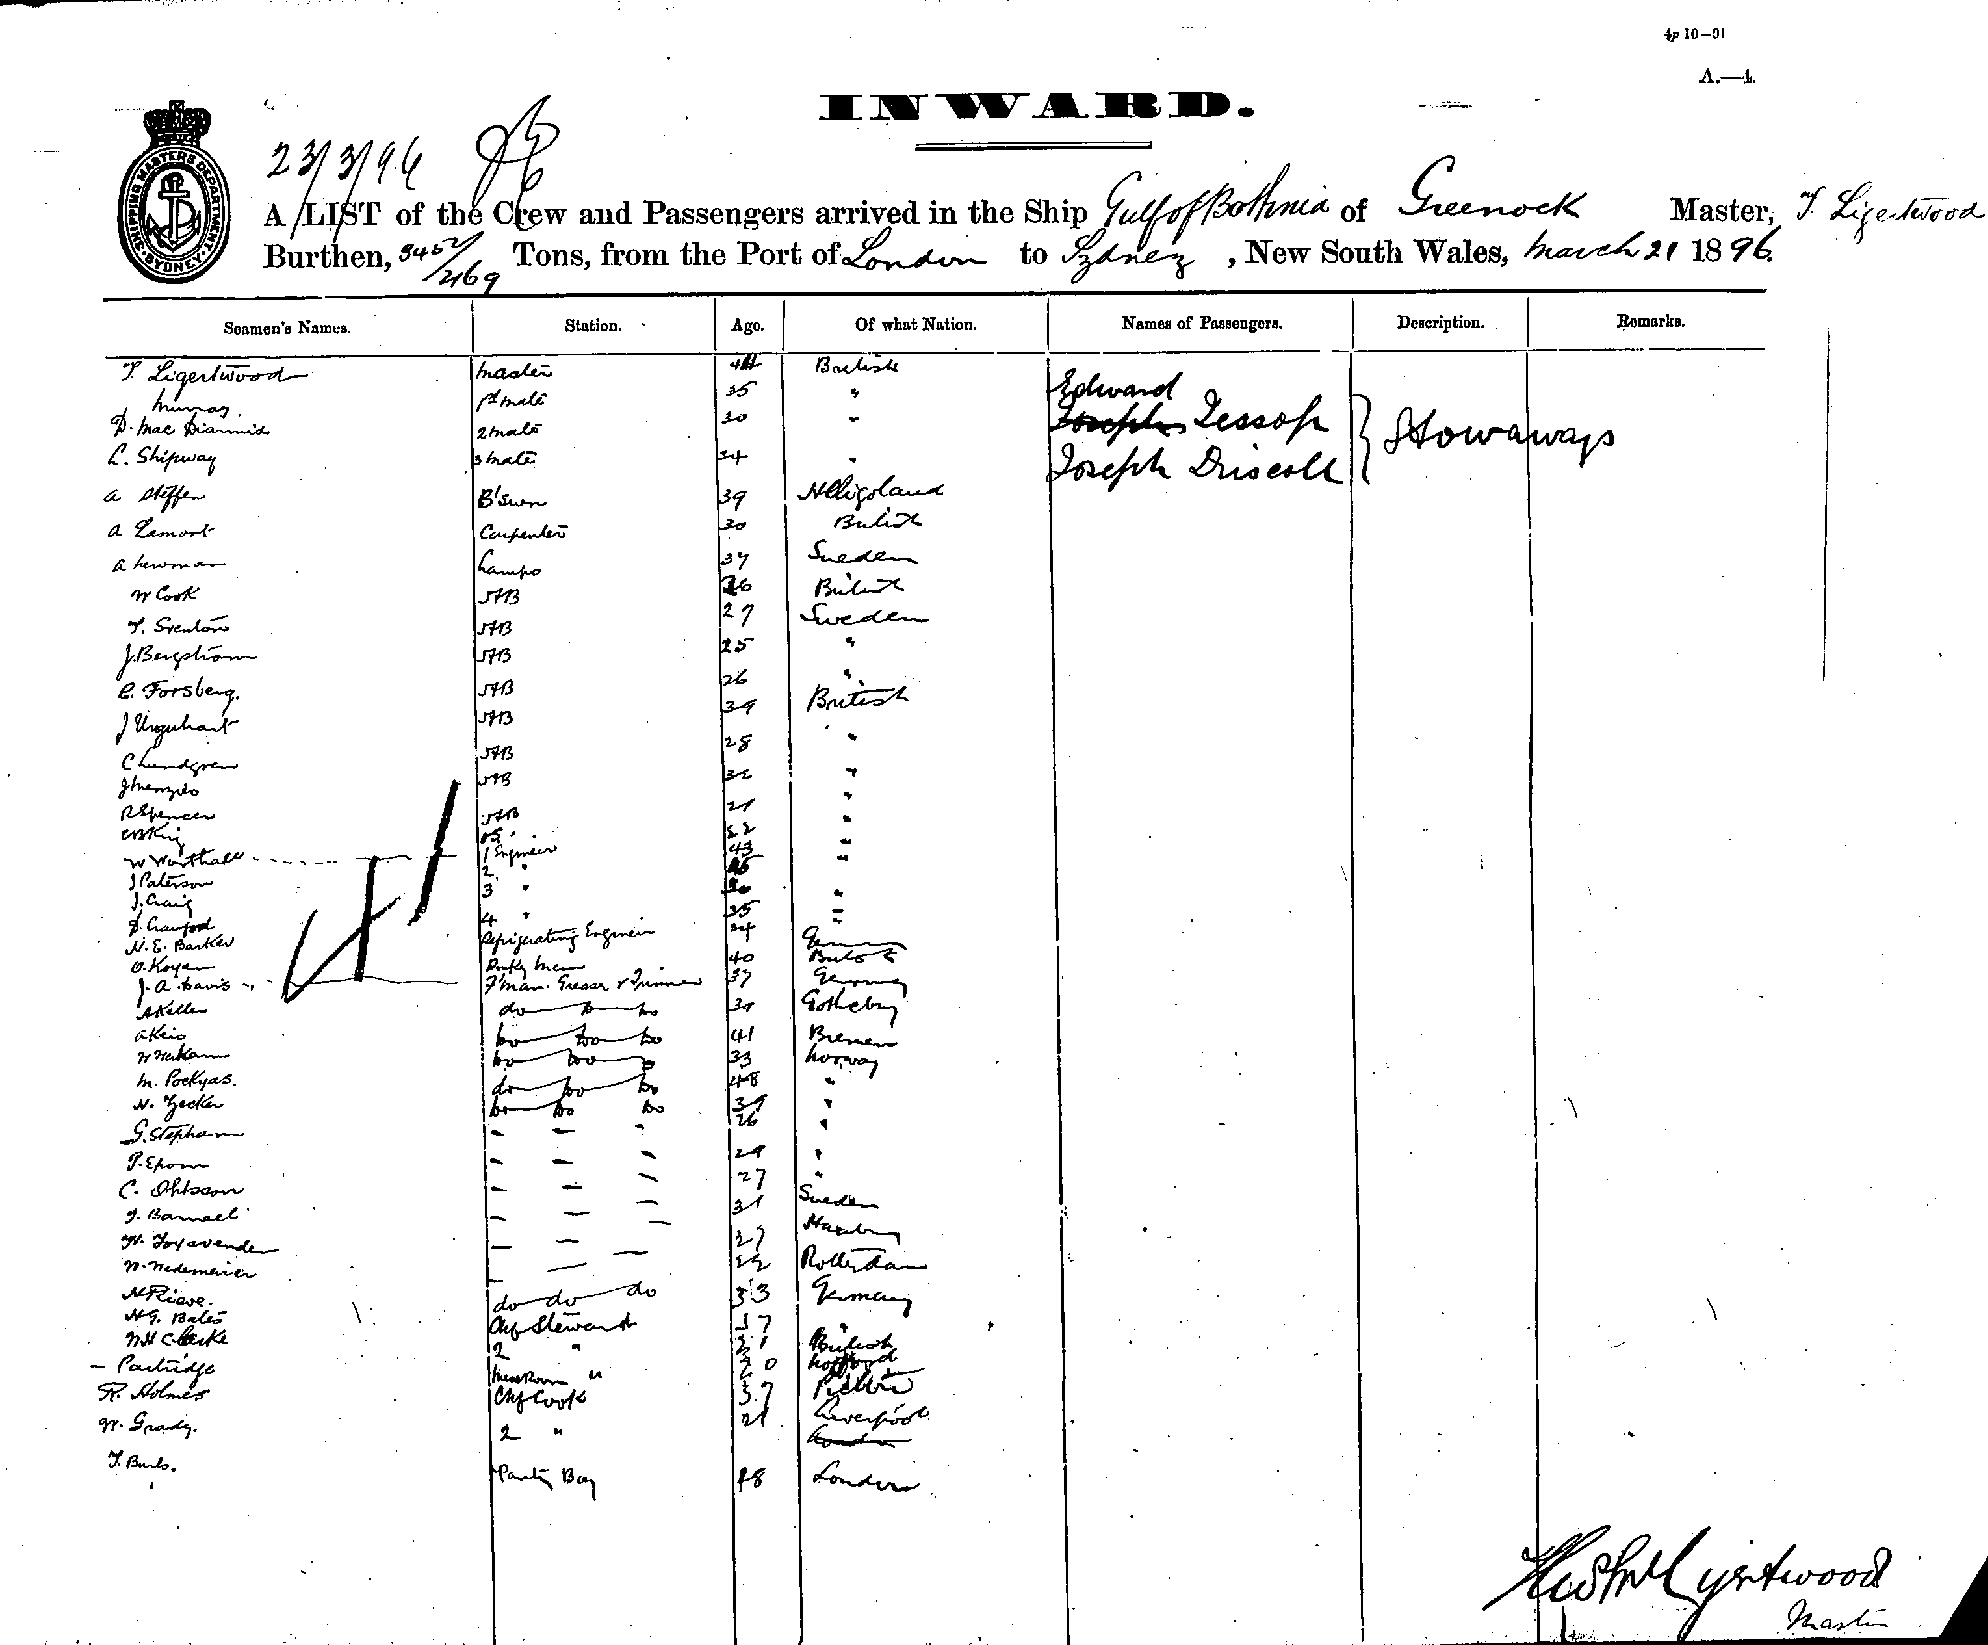 4p 10–91
A.—4.
INWARD.
SHIPPING MASTERS DEPARTMENT SYDNEY
23/3/96
A LIST of the Crew and Passengers arrived in the Ship Gulf of Bothnia of Greenock Master, T. Ligertwood
Burthen, 3452/2169 Tons, from the Port of London to Sydney, New South Wales, March 21 1896.
Seamen's Names. Station. Age. Of what Nation. Names of Passengers. Description. Remarks.
T. Ligertwood Master 44 British
Murray. 1st Mate 35 " Edward
D. Mac Diarmid 2 Mate 30 " Joseph Jessop
Stowaways
C. Shipway 3 Mate 34 " Joseph Driscoll
A Steffen B'swn 39 Heligoland
A Lamont Carpenter 30 British
A Newman Lamps 37 Sweden
W Cook AB 26 British
T. Sventon AB 27 Sweden
J. Bergstrom AB 25 "
C. Forsberg. AB 26 "
J Urquhart AB 39 British
C Lundgren AB 28 "
J Menzies AB 32 "
R Spencer AB 21 "
C B King OS 22 "
W Worthall 1 Engineer 43 "
J Paterson 2 "
J. Craig 3 "
D. Crawford 4 " 25 "
H. E. Barker Refrigerating Engineer 24
O. Koyen Donkey Man 40
J. A. Davis F'man. Greaser & Trimmer 37 Germany
A Keller do do do
A Keis do do do 41 Bremen
do do do 33 Norway
M. Pockyas. do do do 48 "
H. Zecker do do do "
G. Stephan 26 "
"
C. Ohlsson 27 "
Sweden
27
W. Nedemeier 22 Rotterdam
do do do 33 Germany
H G. Bates Chf Steward
W H Clarke 2 " British
– Partridge Mess Room "
R. Holmes Chf Cook 37
W. Grady. 2 " 21 Liverpool
T. Burls. Pantry Boy 18 London
Ligertwood
Master